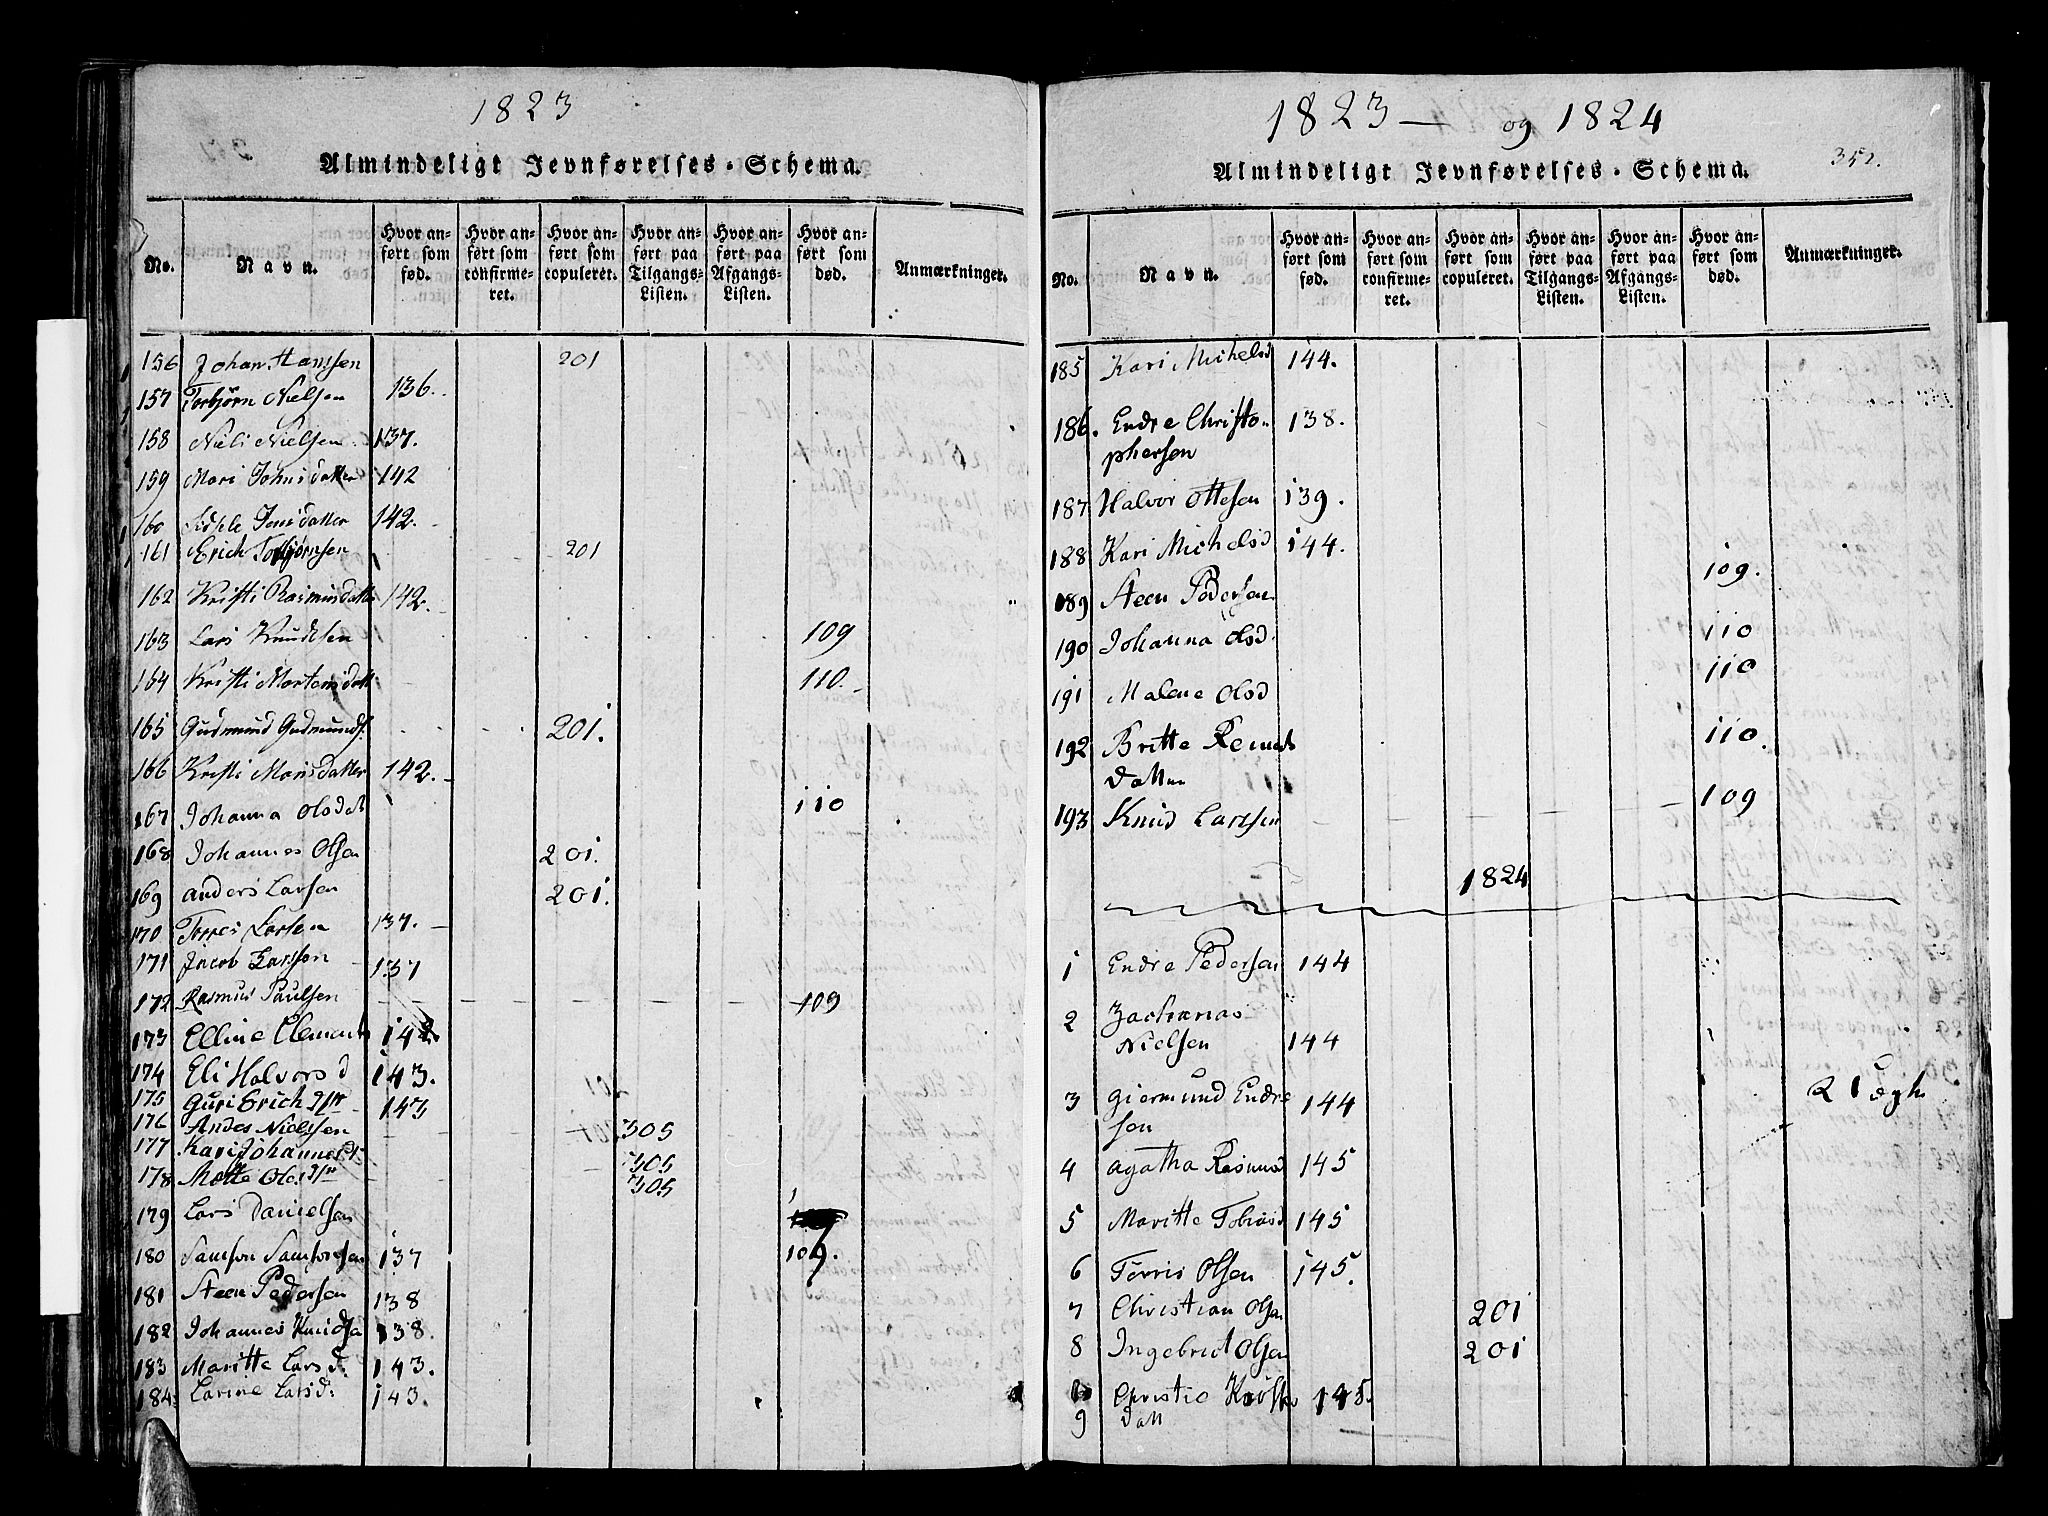 1823
Almindeligt Jevnførelses-Schema.
No. Navn. Hvor anført som fød. Hvor anført som confirmeret. Hvor anført som copuleret. Hvor anført paa Tilgangs-Listen. Hvor anført paa Afgangs-Listen. Hvor anført som død. Anmærkninger.
156 Johan Hanssen 201
157 Torbjørn Nielsen 136.
158 Nieli Nielsen 137.
159 Mari Johnsdatter 142
160 Jensdatter 142.
161 Erich Torbjørnsen 201
162 Kristi Rasmusdatter 142.
163 Lars Knudsen 109
164 Kristi Mortensdatt 110.
165 Gudmund Gudmunds. 201.
166 Kristi Monsdatter 142.
167 Johanna Olsdatt 110
168 Johannes Olsen 201.
169 Anders Larsen 201.
170 Torres Larsen 137.
171 Jacob Larssen 137
172 Rasmus Paulsen 109
173 Elline Clements 142.
174 Eli Halvorsd 143.
175 Guri Erichs 143
176 Andes Nielssen 305
177 Kari Johannesd 305
178 Mette Ols 305
179 Lars Danielsen
109.
180 Samson Samsonsen 137
181 Steen Pedersen 138
182 Johannes Knuds 138.
183 Maritte Larsd: 143.
184. Larine Larsd: 143.
1823 — og 1824
352.
Almindeligt Jevnførelses-Schema.
No. Navn. Hvor anført som fød. Hvor anført som confirmeret. Hvor anført som copuleret. Hvor anført paa Tilgangs-Listen. Hvor anført paa Afgangs-Listen. Hvor anført som død. Anmærkninger.
185 Kari Michelsd 144.
186. Endre Christo- 138.
phersen
187 Halvor Ottesen 139.
188 Kari Michelsd 144.
189 Steen Pedersen 109.
190 Johanna Olsd. 110
191 Malene Olsd 110
192 Britte 110.
datter
193 Knud Larssen 109
1824
1 Endre Pedersen 144
2 Zacharias
Nielsen 144
3 Giermund Endre 144
sen
4 Agatha Rasmusd 145
5 Maritte Tobiasd 145
6 Torris Olsen 145.
7 Christian Olsen 201
8 Ingebrict Olsen 201
9 Christie 145.
Datt